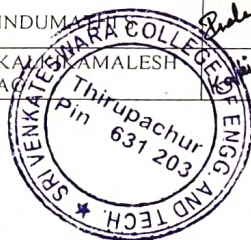 INDUMATHI S
KALI KAMALESH
SRI VENKATESWARA COLLEGE OF ENGG. AND TECH. ★
Thirupachur
Pin 631 203